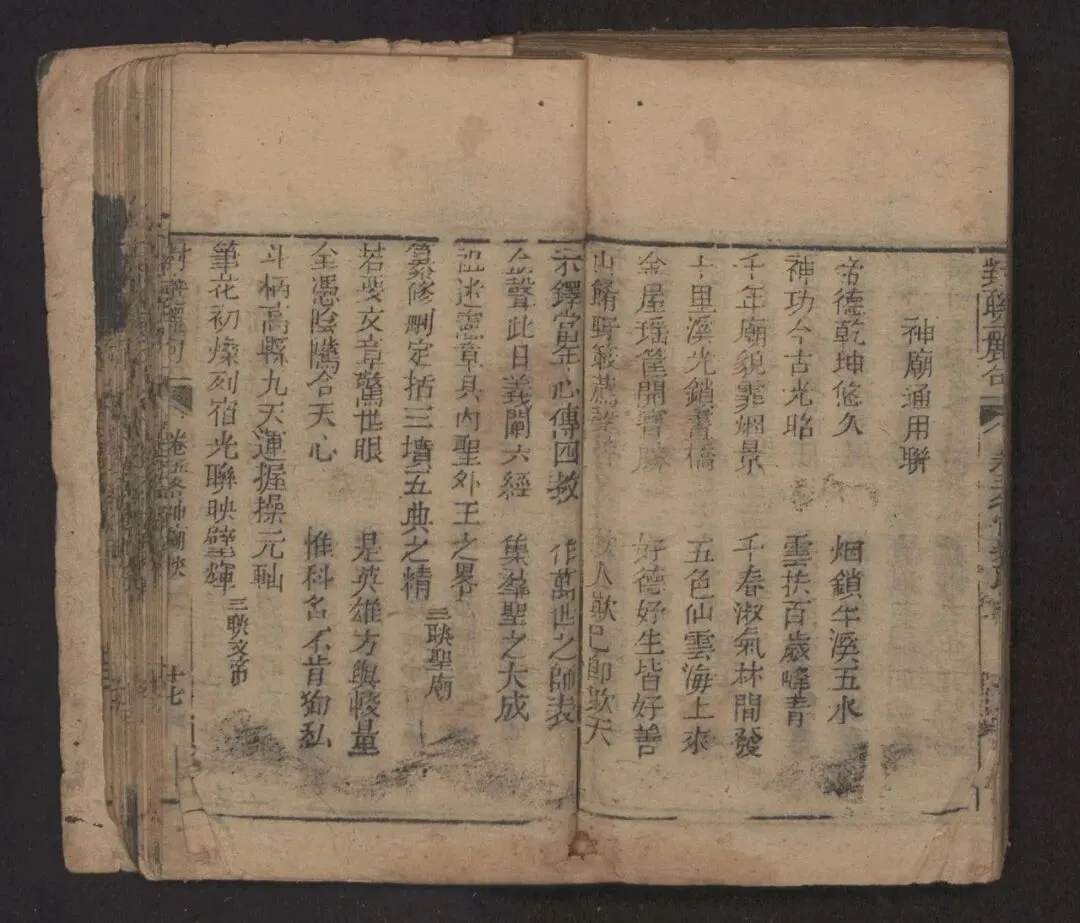 神廟通用聯
帝德乾坤悠久 烟鎖半溪五水
神功今古光昭 雲扶百歲峰青
千年廟貌霏烟景 千春淑氣林間發
十里溪光鎖畫橋 五色仙雲海上來
金屋瑶筐開寶 好德好生皆好善
山餚野蔌薦馨 欺人欺己即欺天
木鐸當年心傳四教 作萬世之師表
金聲此日義闡六經 集羣聖之大成
述憲章具內聖外王之畧
纂修刪定括三墳五典之精 三联聖廟
若憑文章驚世眼 是英雄方與較量
全憑陰隲合天心 惟科名不肯狥私
斗柄高縣九天運握操元軸
筆花初燦列宿光聯映璧輝 三联文帝
卷五各神廟联 十七